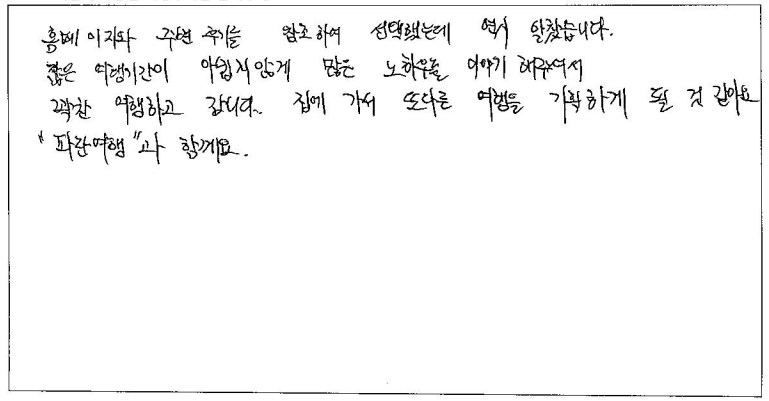 홈페이지와 주변 후기를 참조하여 선택했는데 역시 알찼습니다.
짧은 여행기간이 아쉽지않게 많은 노하우를 이야기 해주셔서
꽉찬 여행하고 갑니다. 집에 가서 또다른 여행을 기획하게 될 것 같아요
"파란여행"과 함께요.